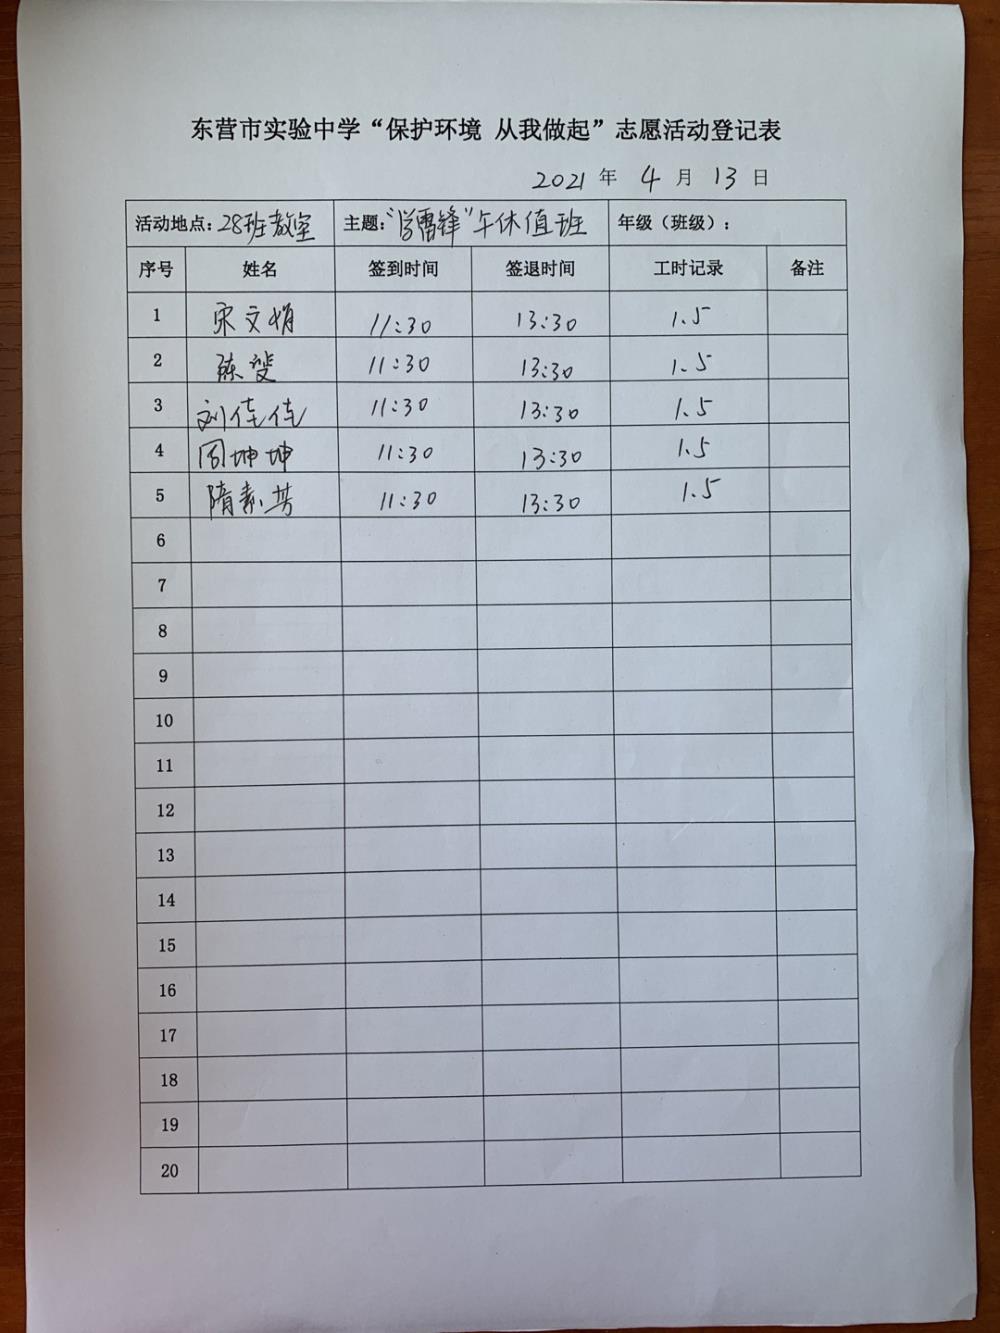 东营市实验中学“保护环境 从我做起”志愿活动登记表
2021 年 4 月 13 日
活动地点：28班教室 主题：“学雷锋”午休值班 年级（班级）：
序号 姓名 签到时间 签退时间 工时记录 备注
1 宋文娟 11:30 13:30 1.5
2 陈 11:30 13:30 1.5
3 刘佳佳 11:30 13:30 1.5
4 周坤坤 11:30 13:30 1.5
5 隋素芳 11:30 13:30 1.5
6
7
8
9
10
11
12
13
14
15
16
17
18
19
20